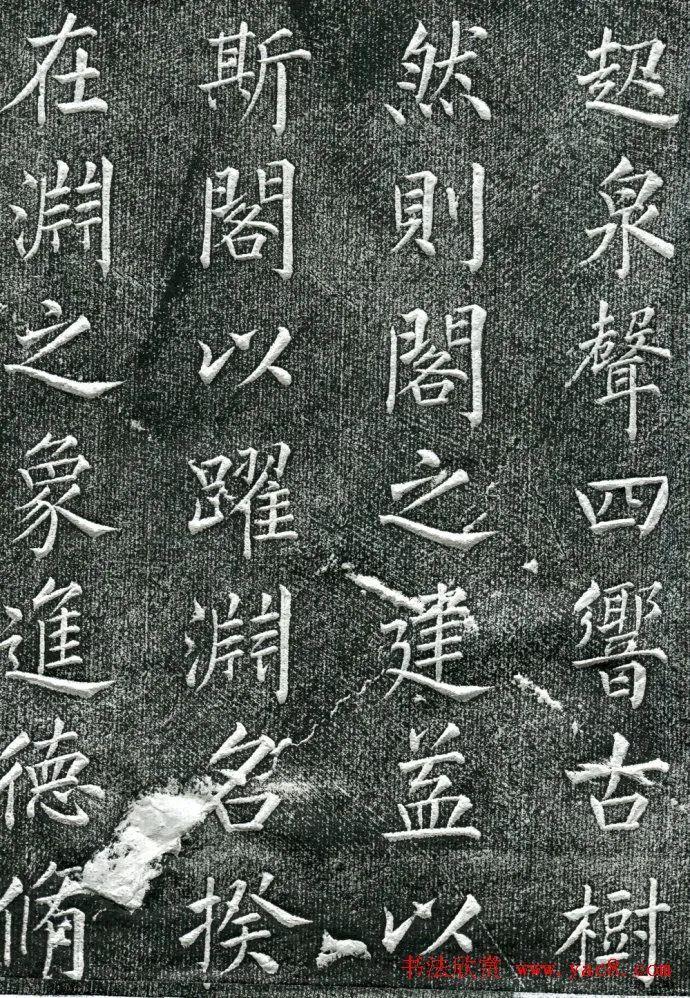 超泉聲四響古樹
然則閣之建蓋以
斯閣以躍淵名揆
在淵之象進德脩
书法欣赏 www.yac8.com